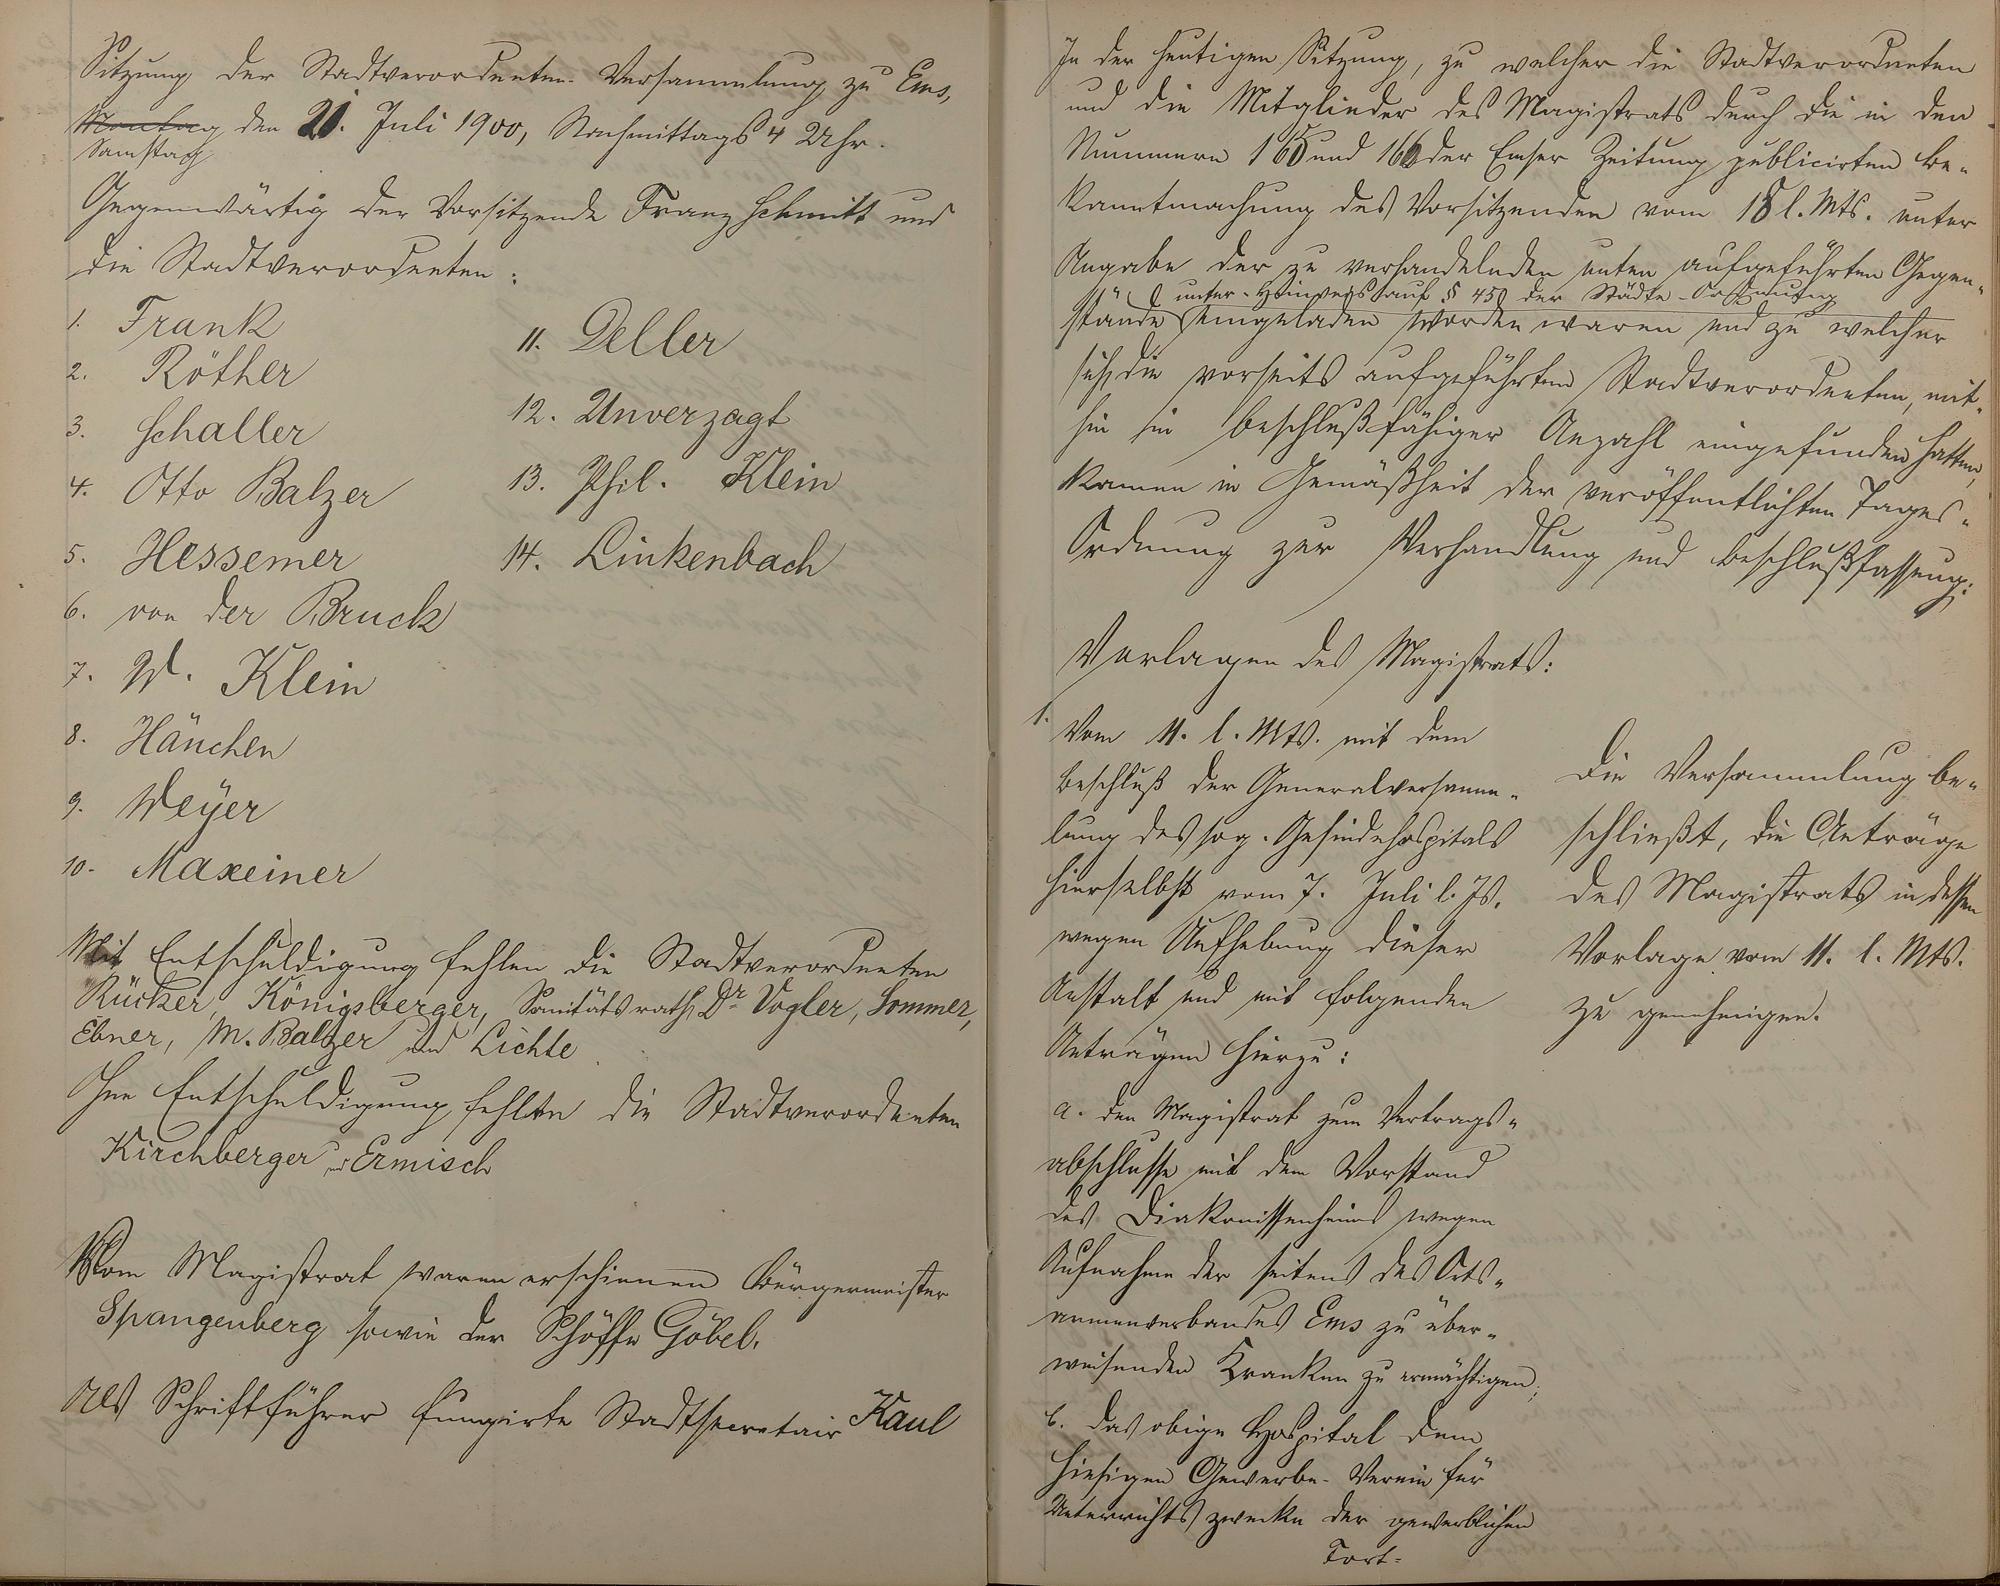 Sitzung der Stadtverordneten-Versammlung zu Ems,
Montag den 21. Juli 1900, Nachmittags 4 Uhr.
Samstag
Gegenwärtig der Vorsitzende Franz Schmitt und
die Stadtverordneten:
1. Frank
2. Röther
3. Schaller
4. Otto Balzer
5. Hessemer
6. von der Bruck
7. W. Klein
8. Hänchen
9. Weyer
10. Maxeiner
11. Deller
12. Unverzagt
13. Phil. Klein
14. Linkenbach
Mit Entschuldigung fehlen die Stadtverordneten
Rücker, Königsberger, Sanitätsrath Dr. Vogler, Sommer,
Ebner, M. Balzer und Lichte
Ohne Entschuldigung fehlten die Stadtverordneten
Kirchberger und Ermisch
Vom Magistrat waren erschienen Bürgermeister
Spangenberg sowie der Schöffe Göbel.
Als Schriftführer fungirte Stadtsecretair Kaul
In der heutigen Sitzung, zu welcher die Stadtverordneten
und die Mitglieder des Magistrats durch die in den
Nummern 165 und 166 der Emser Zeitung publicirten Be-
kanntmachung des Vorsitzenden vom 18 l. Mts. unter
Angabe der zu verhandelnden unten aufgeführten Gegen-
unter Hinweis auf § 45 der Städte-Ordnung
stände eingeladen worden waren und zu welcher
sich die vorseits aufgeführten Stadtverordneten, mit-
hin in beschlußfähiger Anzahl eingefunden hatten,
kamen in Gemäßheit der veröffentlichten Tages-
Ordnung zur Verhandlung und Beschlußfassung:
Vorlagen des Magistrats:
1. Vom 11. l. Mts. mit dem
Beschluß der Generalversamm-
lung des sog. Gesindehospitals
hierselbst vom 7. Juli l. Js.
wegen Aufhebung dieser
Anstalt und mit folgenden
Anträgen hierzu:
a. den Magistrat zum Vertrags-
abschlusse mit dem Vorstand
des Diakonissenheims wegen
Aufnahme der seitens des Orts-
armenverbandes Ems zu über-
weisenden Kranken zu ermächtigen;
b. das obige Hospital dem
hiesigen Gewerbe-Verein für
Unterrichtszwecke der gewerblichen
Fort-
Die Versammlung be-
schließt, die Anträge
des Magistrats in dessen
Vorlage vom 11. l. Mts.
zu genehmigen.